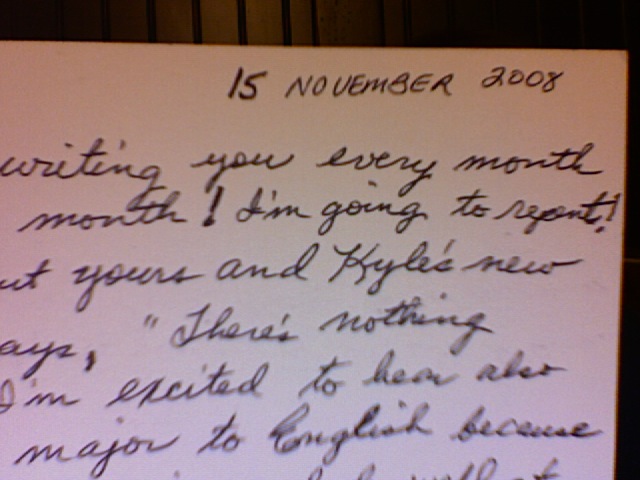 15 NOVEMBER 2008
writing you every month
month! I'm going to repent!
ut yours and Kyle's new
ays, "There's nothing
I'm excited to hear also
major to English because